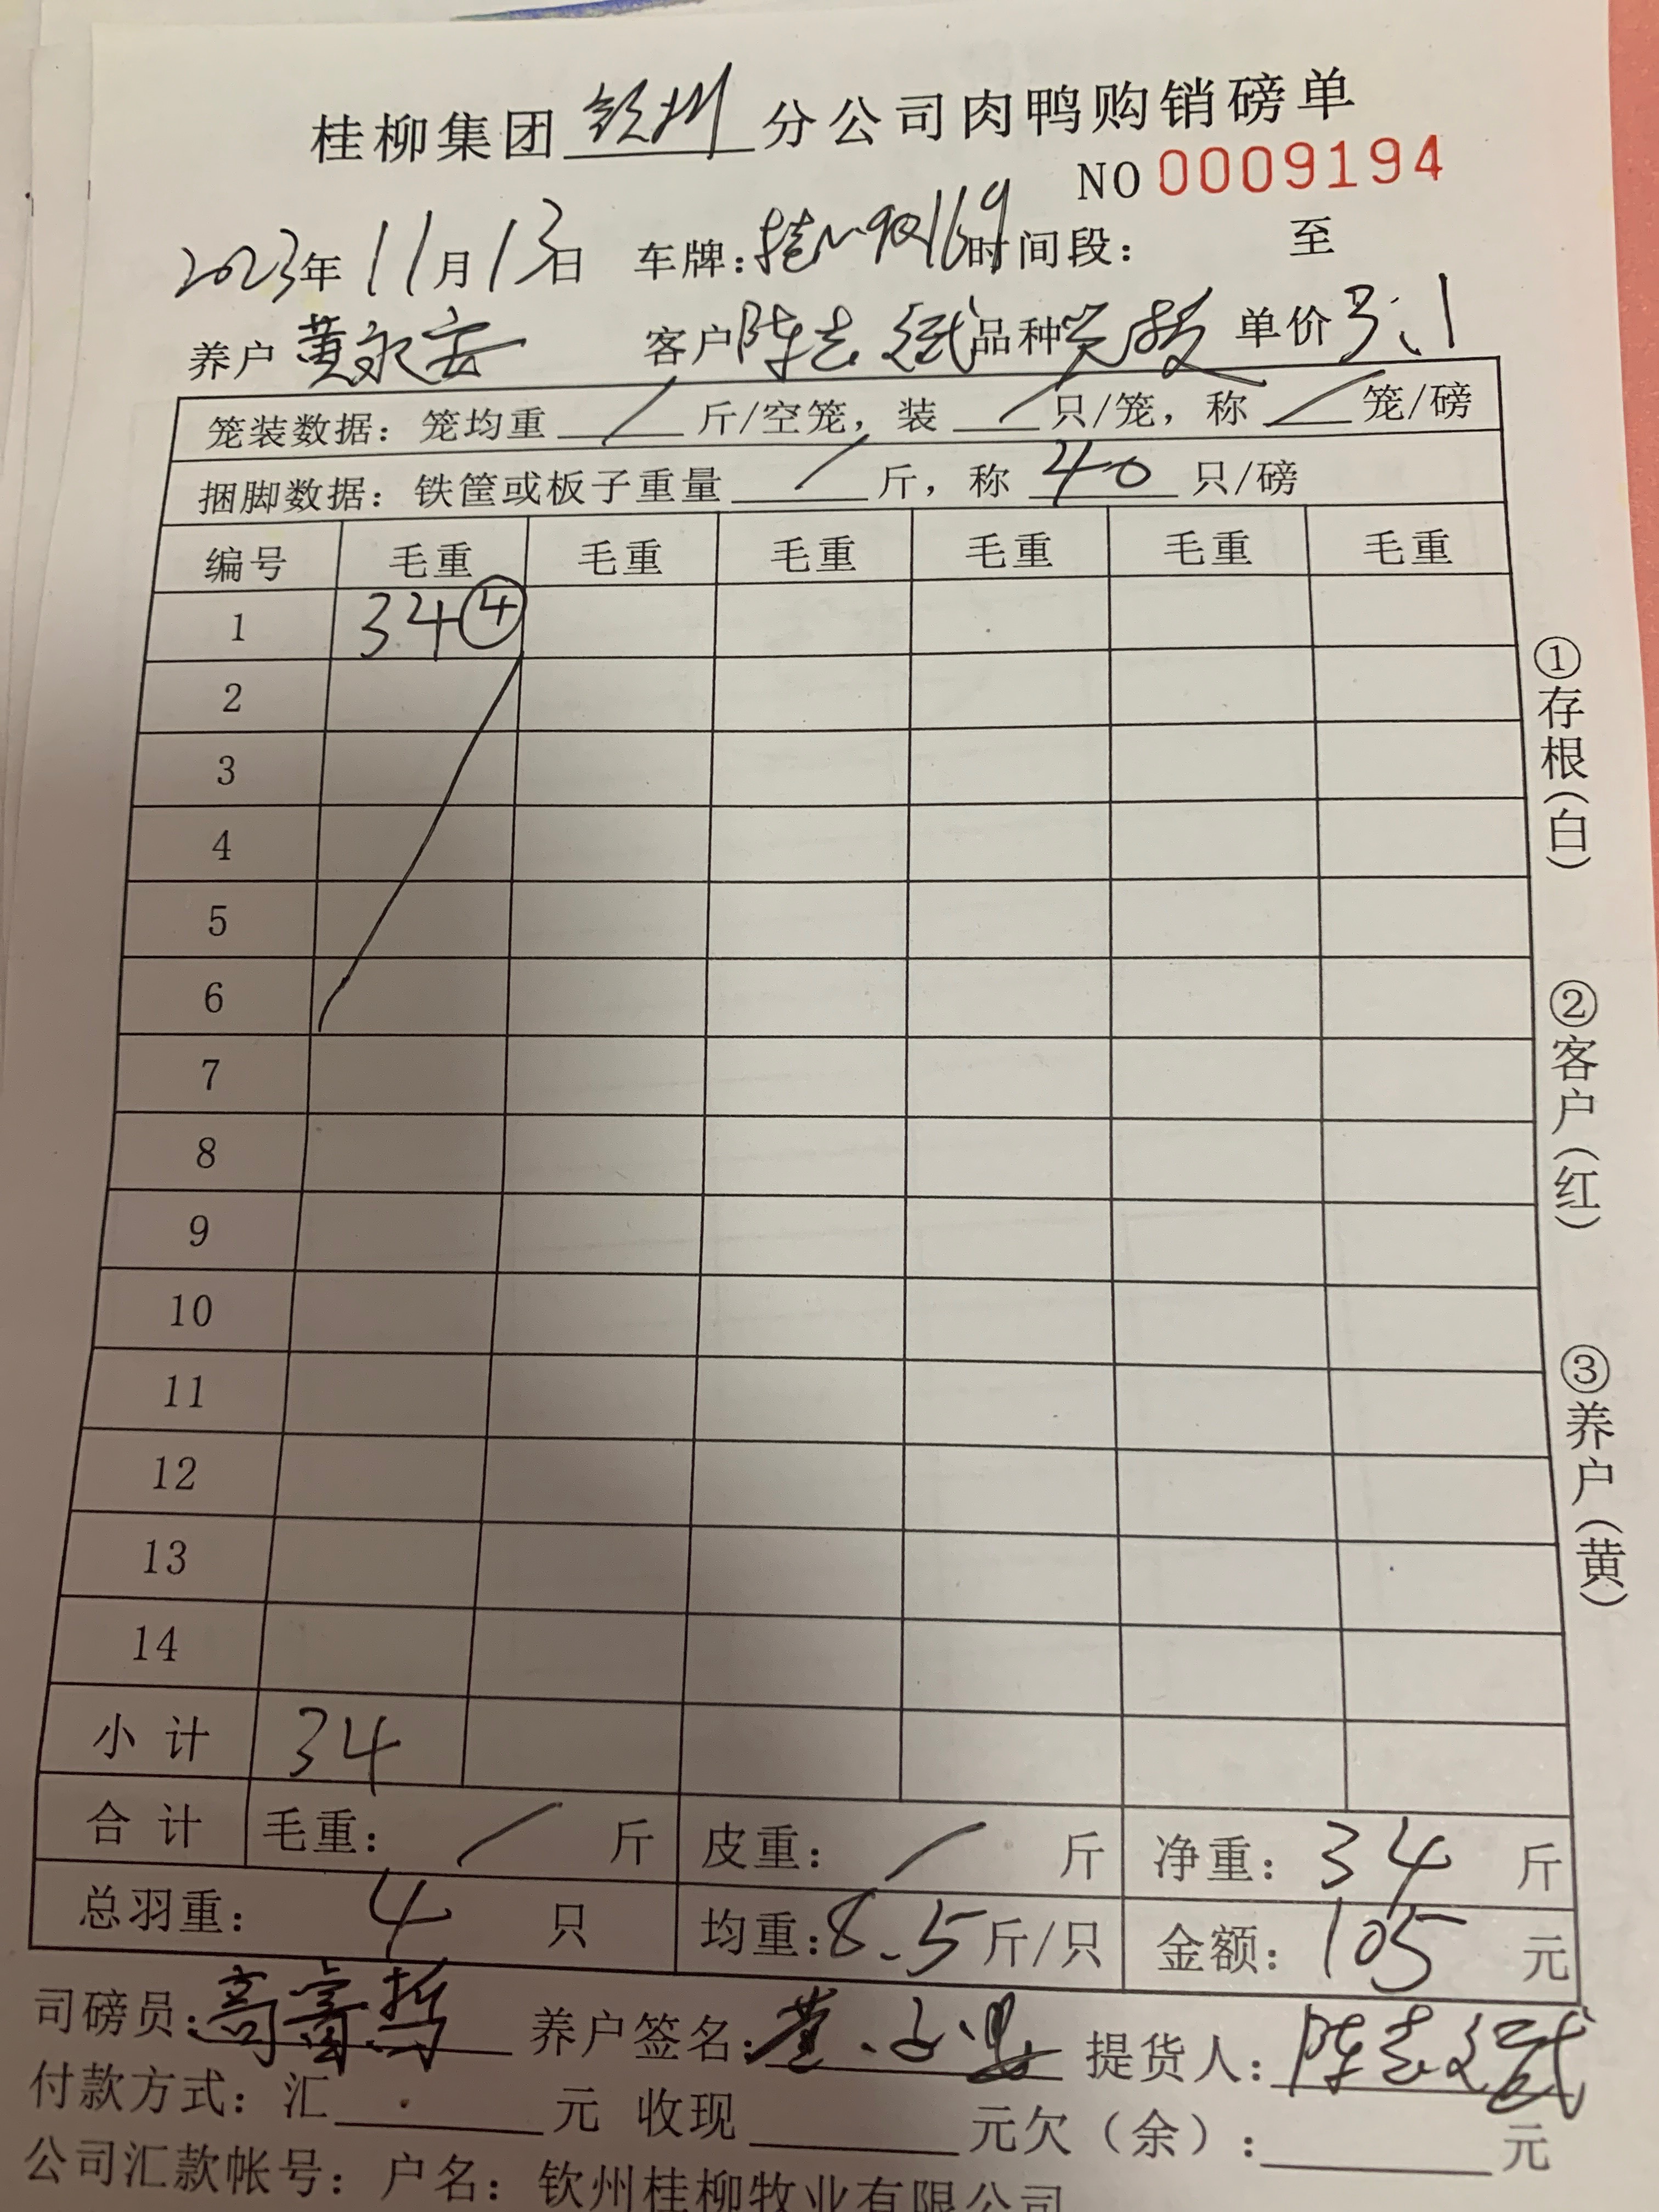 桂柳集团 钦州 分公司肉鸭购销磅单
NO 0009194
2023年 11月 13日 车牌: 时间段: 至
养户 黄永安 客户 陈志斌 品种 单价 3.1
笼装数据: 笼均重 / 斤/空笼, 装 / 只/笼, 称 / 笼/磅
捆脚数据: 铁筐或板子重量 / 斤, 称 40 只/磅
编号 毛重 毛重 毛重 毛重 毛重 毛重
1 34 ④
2
3
4
5
6
7
8
9
10
11
12
13
14
小计 34
合计 毛重: / 斤 皮重: / 斤 净重: 34 斤
总羽重: 4 只 均重: 8.5 斤/只 金额: 105 元
司磅员: 养户签名: 提货人: 陈志斌
付款方式: 汇 元 收现 元欠(余): 元
公司汇款帐号: 户名: 钦州桂柳牧业有限公司
①存根(白)
②客户(红)
③养户(黄)